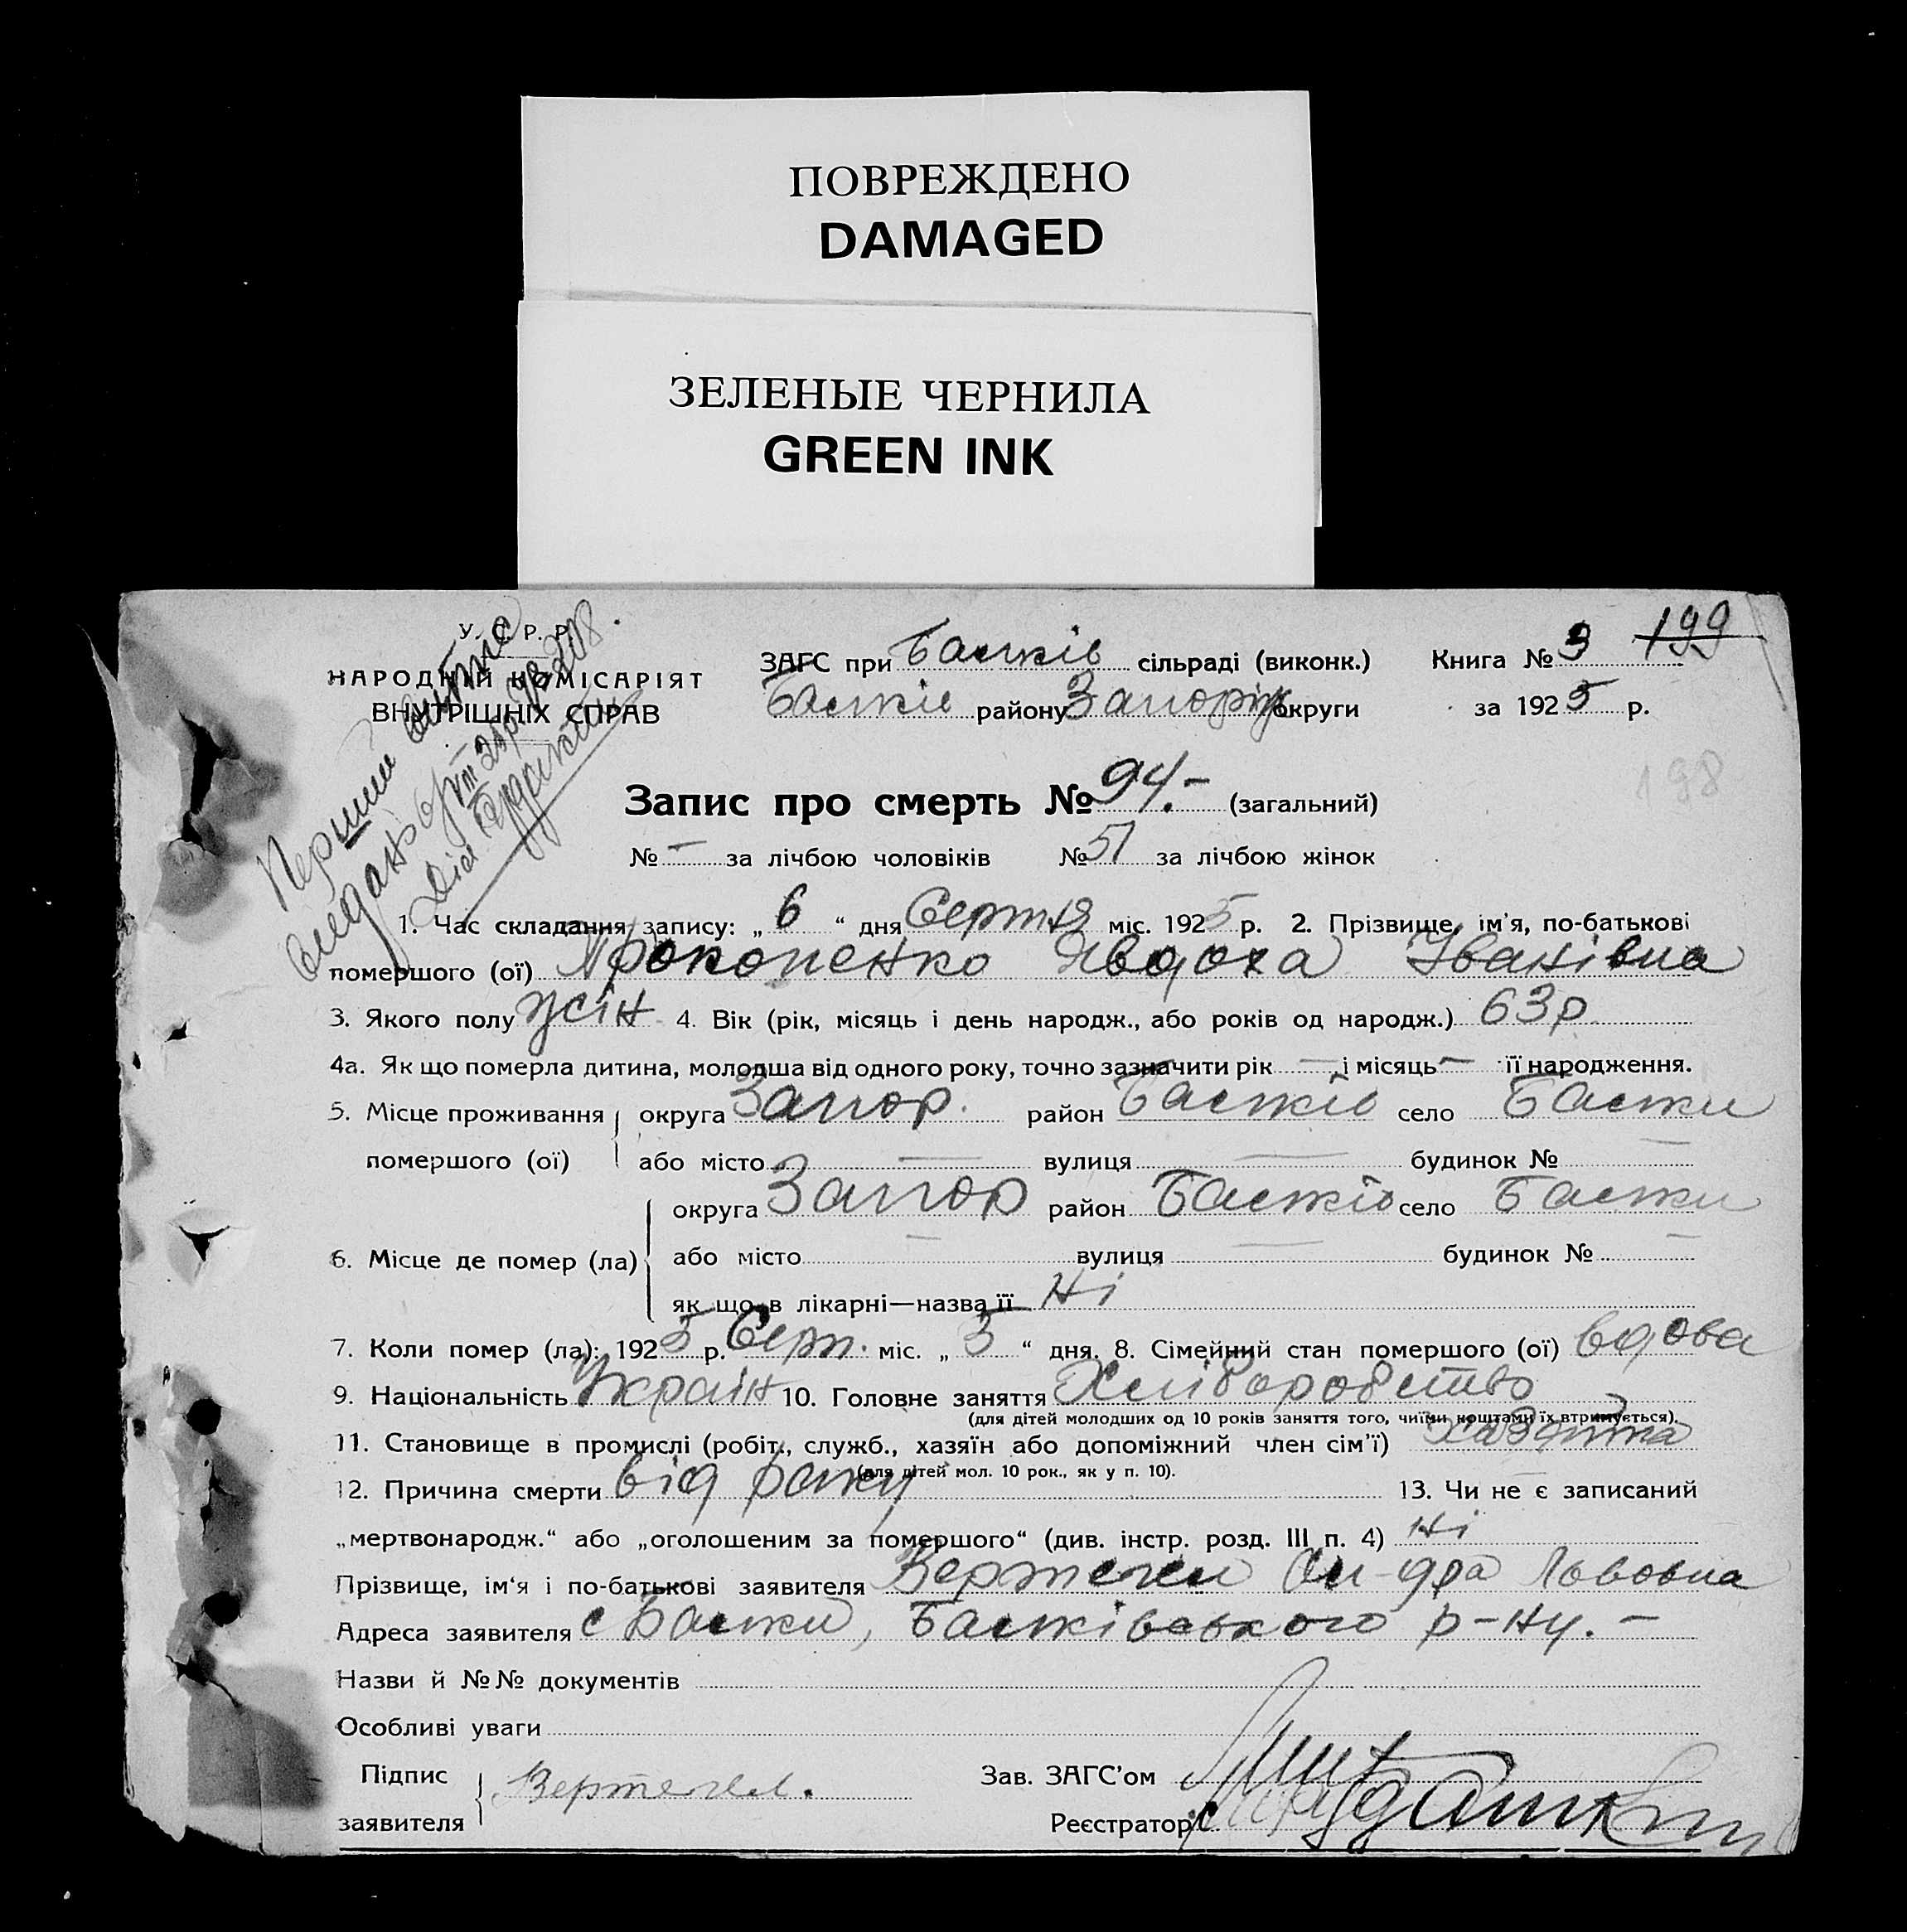 ПОВРЕЖДЕНО
DAMAGED
ЗЕЛЕНЫЕ ЧЕРНИЛА
GREEN INK
У. С. Р. Р.
НАРОДНІЙ КОМІСАРІЯТ
ВНУТРІШНІХ СПРАВ
Перший витяг
видань
ЗАГС при Балків сільраді (виконк.) Книга № 3 199
Балків району Запоріж округи за 1925 р.
198
Запис про смерть № 94.- (загальний)
№ — за лічбою чоловіків № 51 за лічбою жінок
1. Час складання запису: „ 6 “ дня Серпня міс. 1925 р. 2. Прізвище, ім'я, по-батькові
помершого (ої) Прокопенко Явдоха Іванівна
3. Якого полу жін 4. Вік (рік, місяць і день народж., або років од народж.) 63 р.
4а. Як що померла дитина, молодша від одного року, точно зазначити рік — і місяць — її народження.
5. Місце проживання округа Запор. район Балків село Балки
помершого (ої) або місто — вулиця — будинок № —
округа Запор район Балків село Балки
6. Місце де помер (ла) або місто — вулиця — будинок № —
як що в лікарні—назва її Ні
7. Коли помер (ла): 1925 р. Серп. міс. „ 5 “ дня. 8. Сімейний стан помершого (ої) вдова
9. Національність Україн 10. Головне заняття Хліборобство
(для дітей молодших од 10 років заняття того, чиїми коштами їх втримується).
11. Становище в промислі (робіт., служб., хазяїн або допоміжний член сім'ї)
(для дітей мол. 10 рок., як у п. 10).
12. Причина смерти від раку 13. Чи не є записаний
„мертвонародж.“ або „оголошеним за помершого“ (див. інстр. розд. III п. 4) Ні
Прізвище, ім'я і по-батькові заявителя Львовна
Адреса заявителя с Балки, Балківського р-ну. —
Назви й №№ документів
Особливі уваги
Підпис Зав. ЗАГС'ом
заявителя Реєстратор